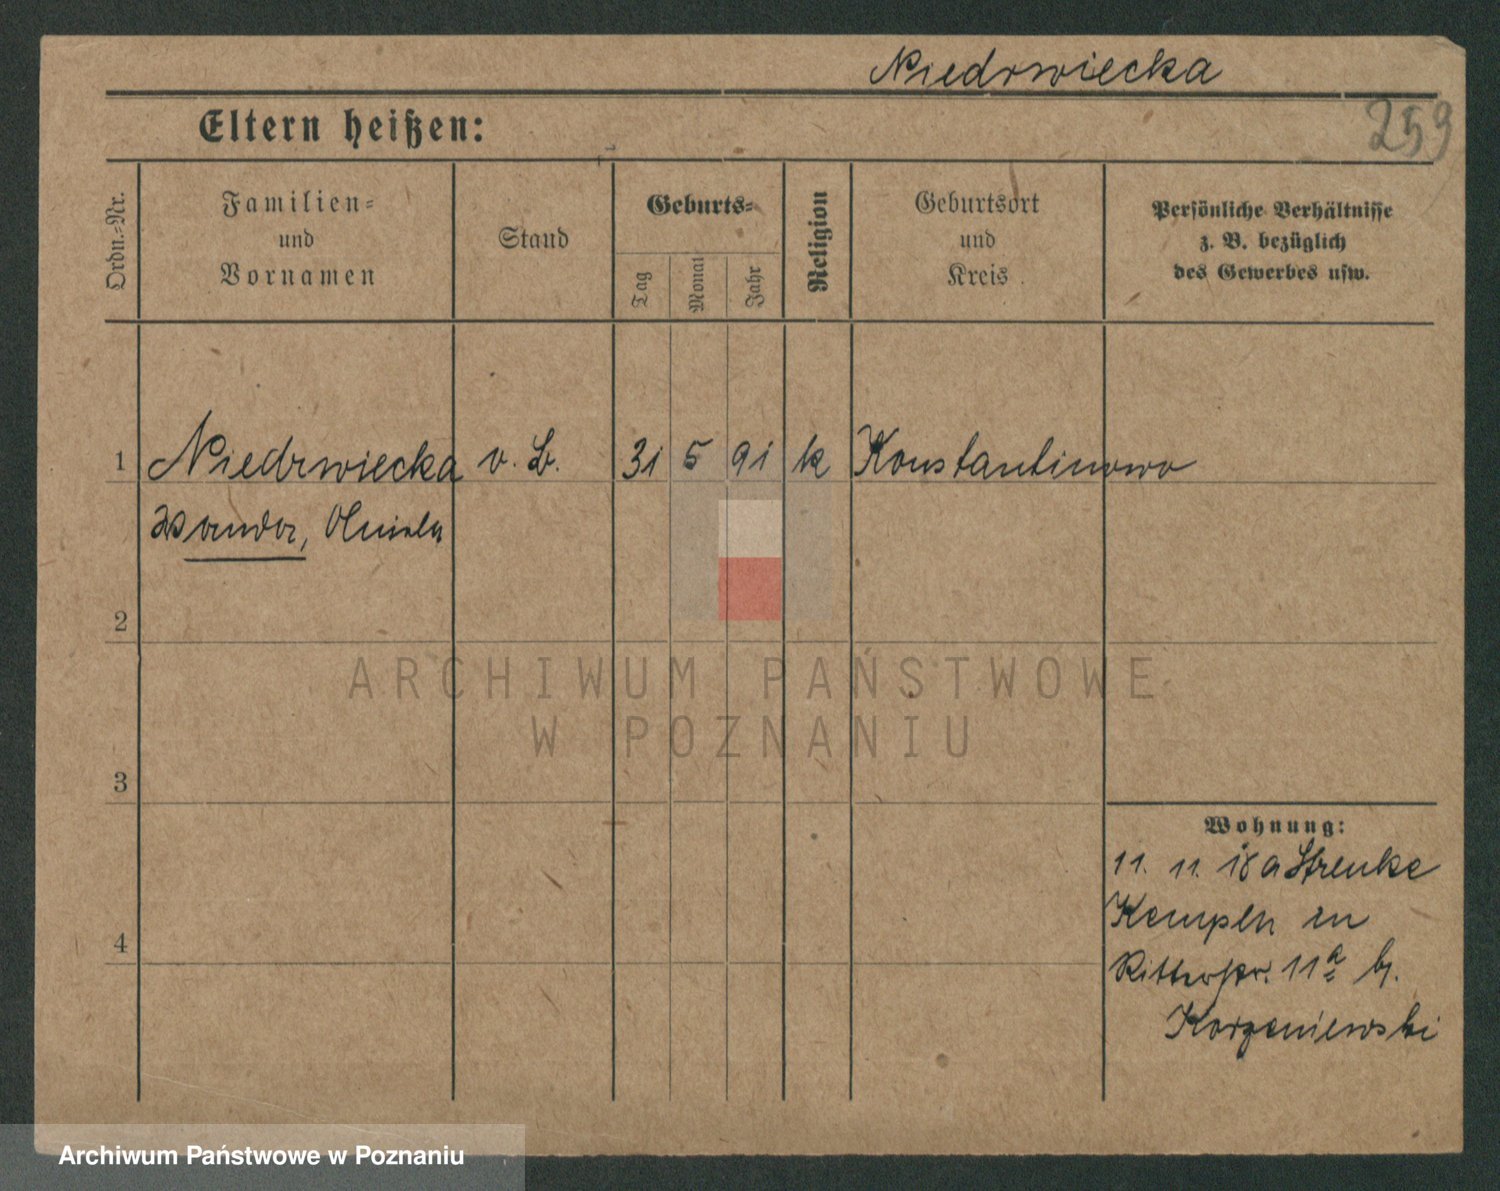 Niedrwiecka
Eltern heißen:
259
Ordn.-Nr.
Familien-
und
Vornamen
Stand
Geburts-
Tag
Monat
Jahr
Religion
Geburtsort
und
Kreis
Persönliche Verhältnisse
z. B. bezüglich
des Gewerbes usw.
1 Niedrwiecka v. B. 31 5 91 k Konstantinowo
Wanda,
2
ARCHIWUM PAŃSTWOWE
W POZNANIU
3
Wohnung:
11. 11. 18 a
Kempen in
Ritterstr. 11a b.
Korzeniewski
4
Archiwum Państwowe w Poznaniu